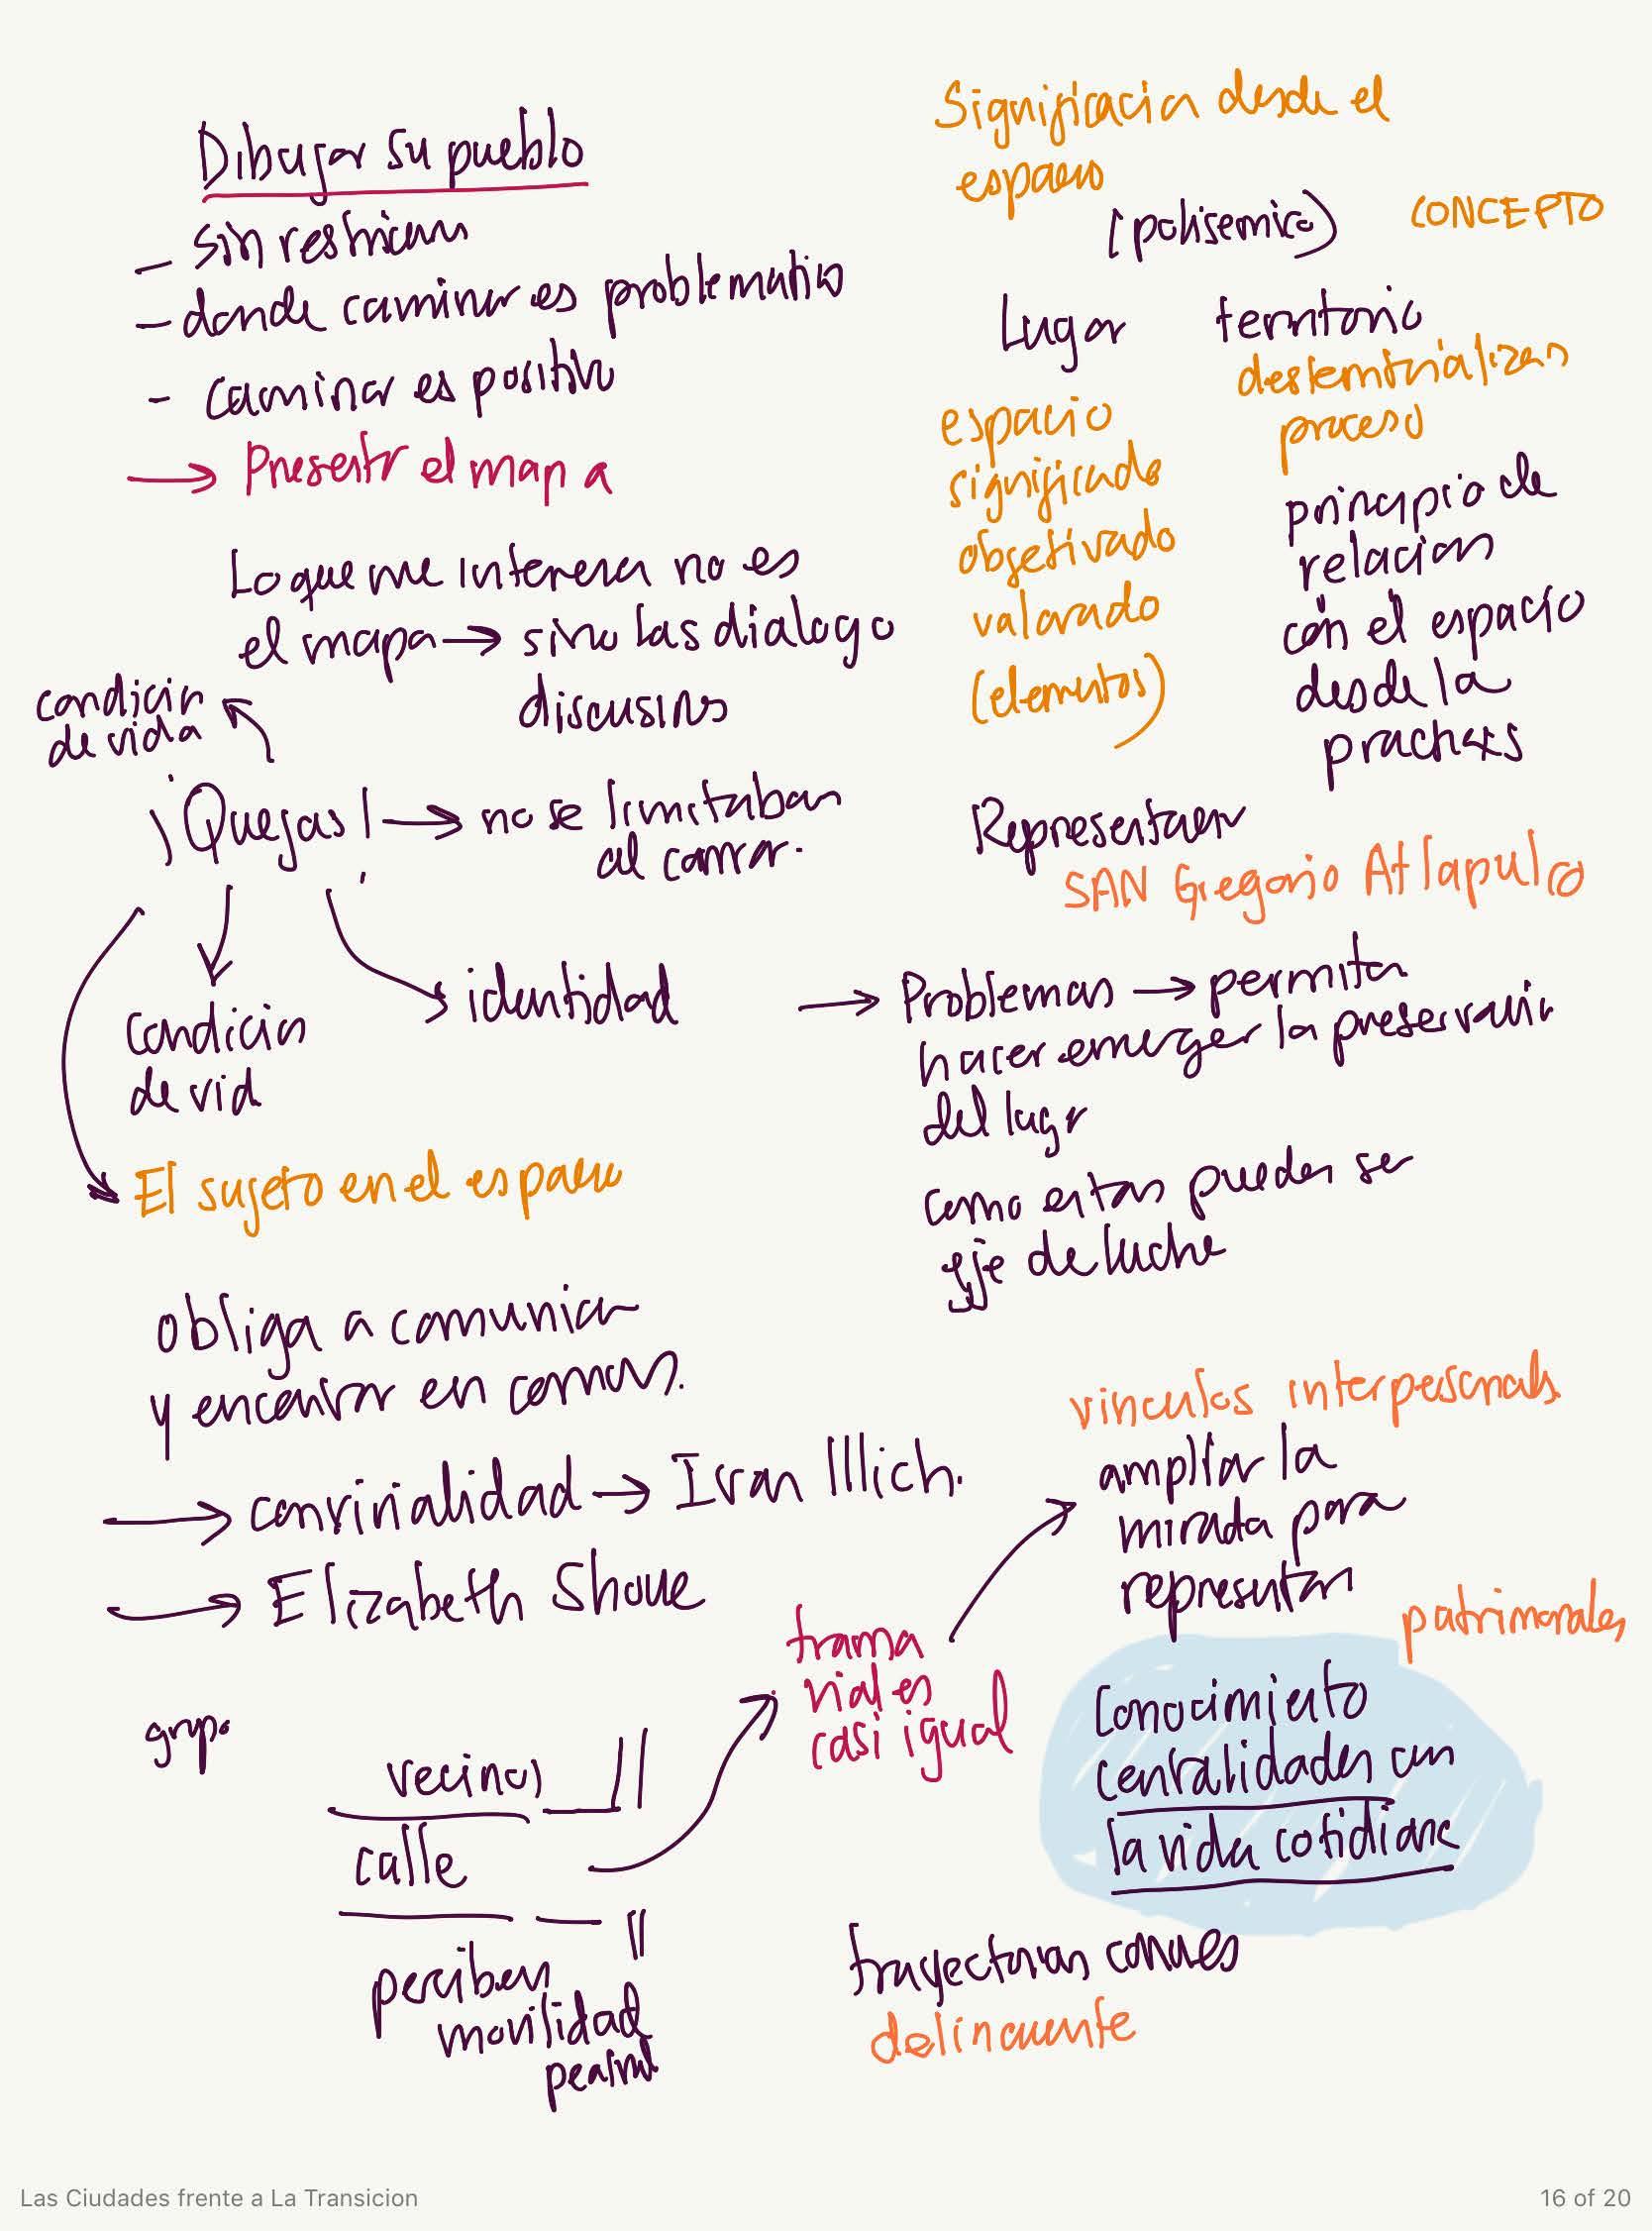 Dibujar su pueblo
– sin restriccion
– donde caminar es problematico
– caminar es positivo
→ Presentr el mapa
Lo que me interesa no es
el mapa → sino las dialogo
discusions
condicin
de vida
¡Quejas! → no se limitaban
al camar.
condicin
de vid
identidad
El sujeto en el espacio
obliga a comunicar
y encontrar en comun.
→ convivialidad → Ivan Illich.
→ Elizabeth Shove
grupo
vecinos
calle
perciben
movilidad
peatnal
Significacion desde el
espacio
(polisemico) CONCEPTO
Lugar
espacio
significado
objetivado
valorado
(elementos)
territorio
proceso
principio de
relacion
con el espacio
desde la
practicas
Representacion
SAN Gregorio Atlapulco
→ Problemas → permitan
hacer emerger la preservacin
del lugr
como estas pueden ser
eje de lucha
vinculos interpersonals
ampliar la
mirada para
representar
patrimoniales
trama
viales
casi igual
Conocimiento
centralidades con
la vida cotidiana
trayectorias comunes
delincuente
Las Ciudades frente a La Transicion
16 of 20